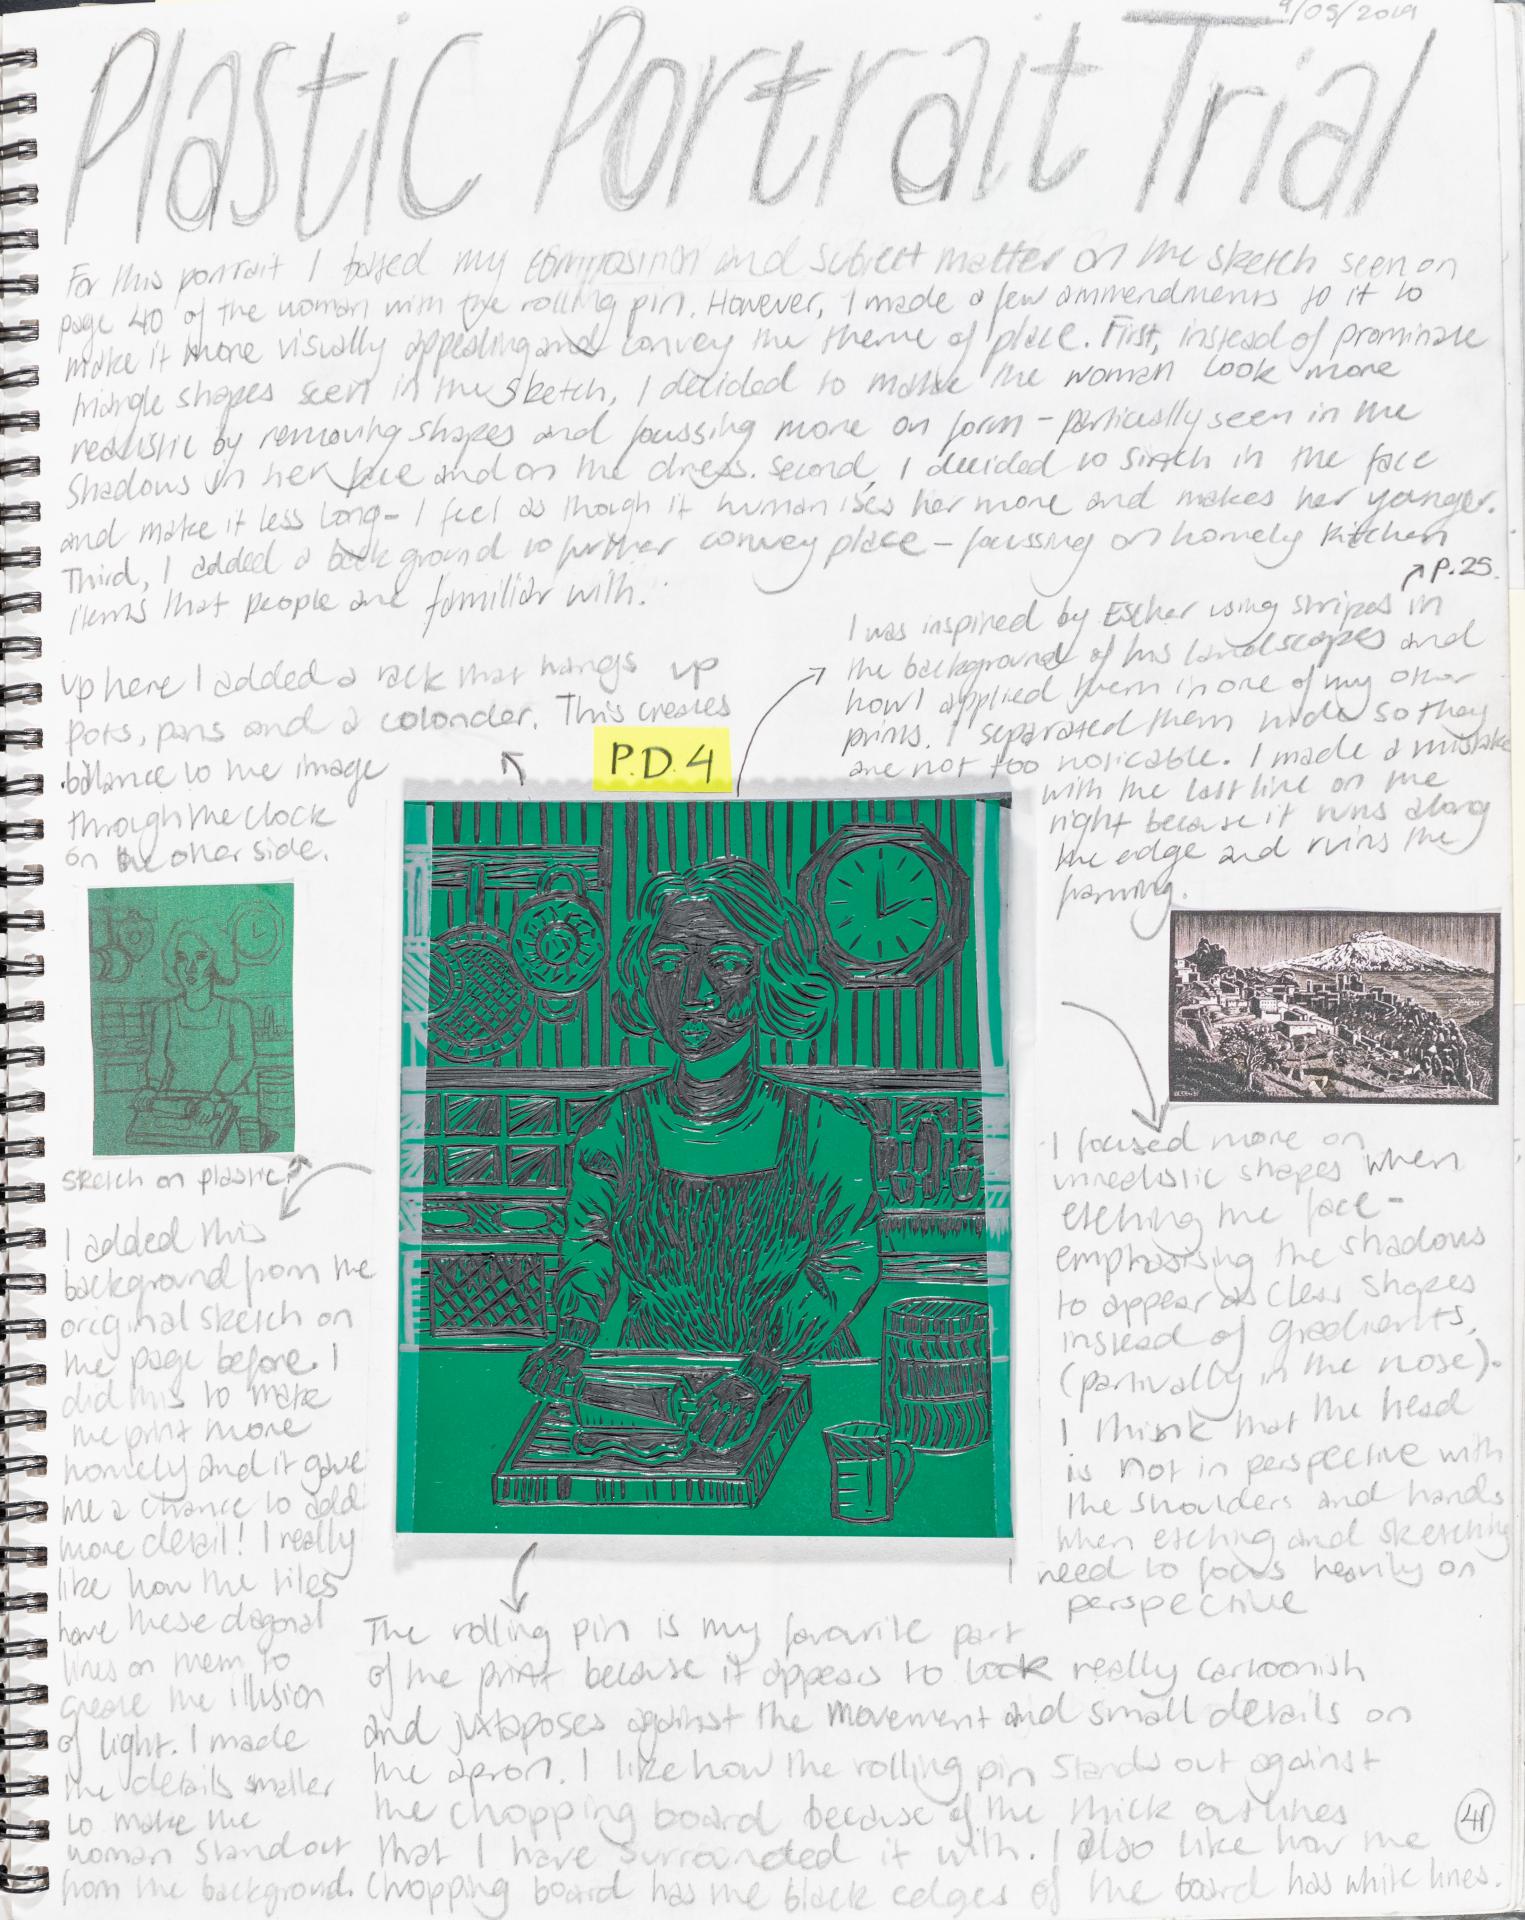 9/05/2019
Plastic Portrait Trial
For this portrait I based my composition and subject matter on the sketch seen on
page 40 of the woman with the rolling pin. However, I made a few ammendments to it to
make it more visually appealing and convey the theme of place. First, instead of prominate
triangle shapes seen in the sketch, I decided to make the woman look more
realistic by removing shapes and foussing more on form - particually seen in the
shadows in her face and on the dress. Second, I decided to in the face
and make it less long - I feel as though it humanises her more and makes her younger.
Third, I added a background to further convey place - foussing on homely kitchen
items that people are familiar with.
↗ P.25.
I was inspired by Escher using stripes in
the background of his landscapes and
how I applied them in one of my other
prints. I separated them wide so they
are not too noticable. I made a mistake
with the last line on the
right because it runs along
the edge and ruins the
framing.
up here I added a rack that hangs up
pots, pans and a colander. This creates
balance to the image
through the clock
on the other side.
P.D.4
sketch on plastic.
I added this
background from the
original sketch on
the page before. I
did this to make
the print more
homely and it gave
me a chance to add
more detail! I really
like how the tiles
have these diagonal
lines on them to
create the illusion
of light. I made
the details smaller
to make the
woman stand out
from the background.
I focused more on
unrealistic shapes when
etching the face -
emphasising the shadows
to appear as clear shapes
instead of gredients,
(partivally in the nose).
I think that the head
is not in perspective with
the shoulders and hands
when etching and sketching
I need to focus heavily on
perspective
The rolling pin is my favourite part
of the print because it appears to look really cartoonish
and juxtaposes against the movement and small details on
the apron. I like how the rolling pin stands out against
the chopping board because of the thick outlines
that I have surrounded it with. I also like how the
chopping board has the black edges of the board has white lines.
41